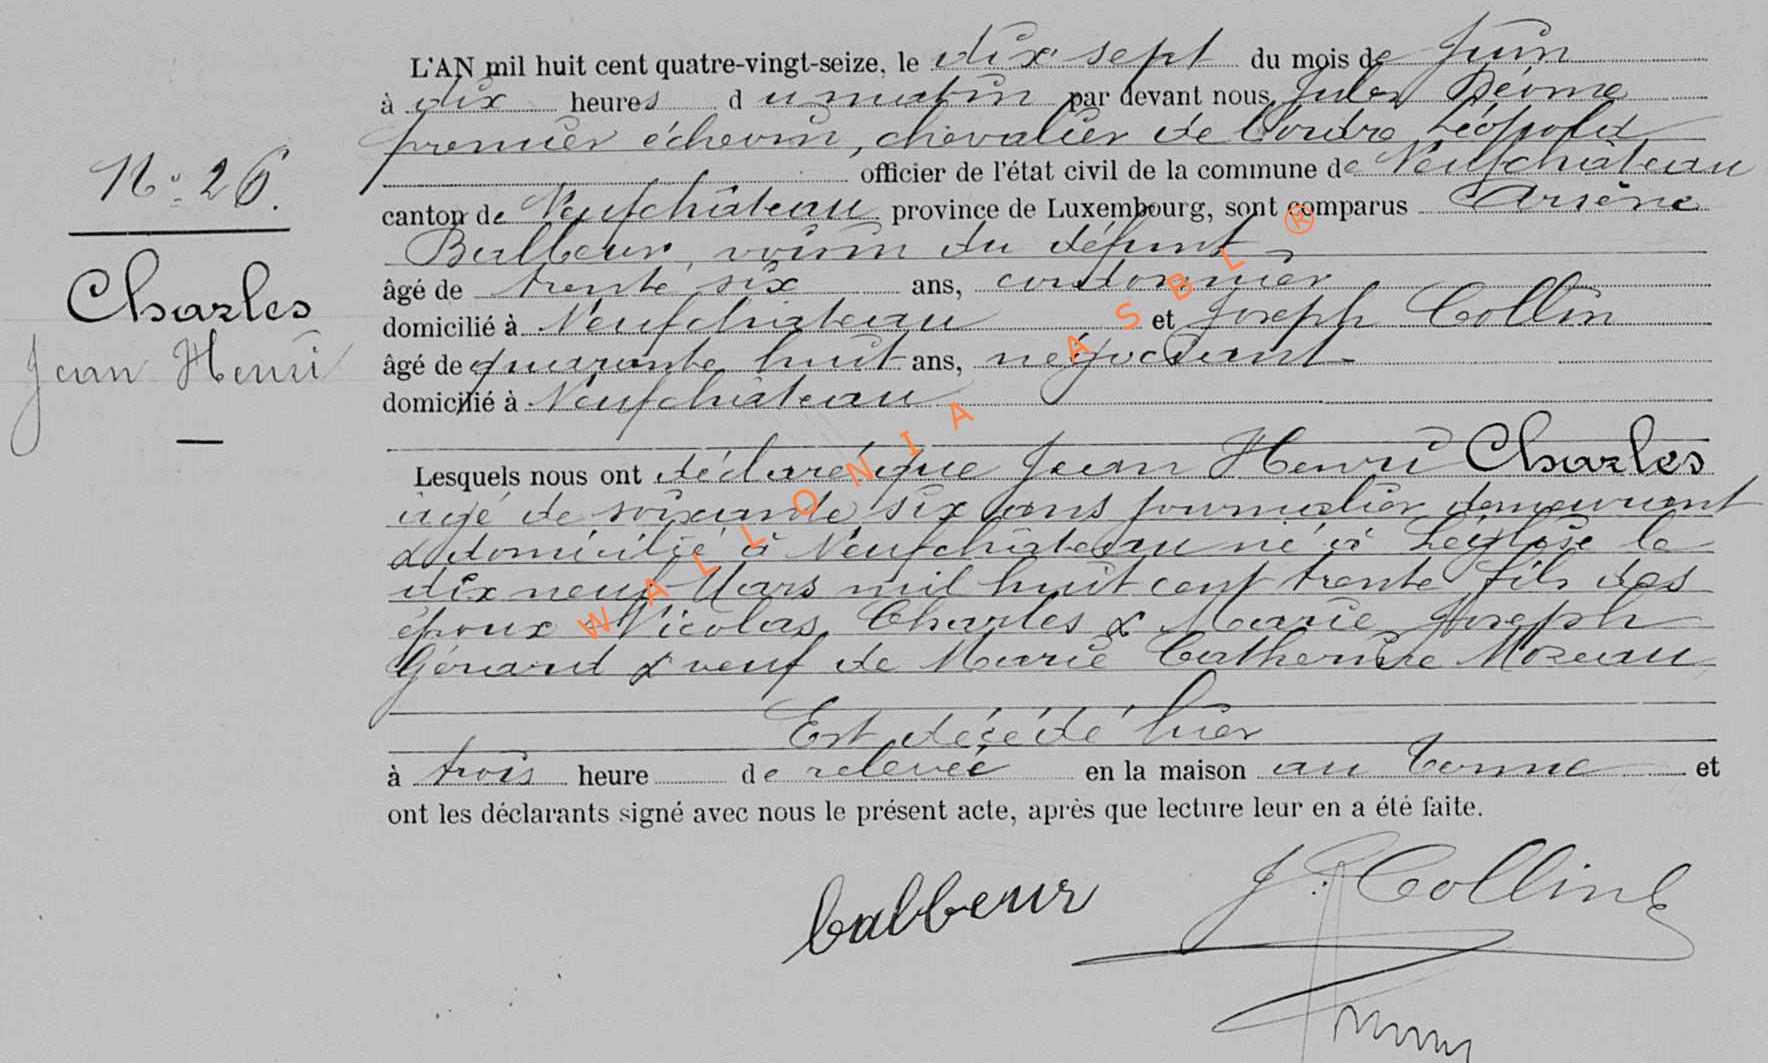 L'AN mil huit cent quatre-vingt-seize, le dix sept du mois de Juin
à dix heures du matin par devant nous Jules
premier échevin, chevalier de l'ordre Léopold
officier de l'état civil de la commune de Neufchâteau
N° 26.
canton de Neufchâteau province de Luxembourg, sont comparus Arsène
Balbeur, voisin du défunt
âgé de trente six ans, cordonnier
Charles
domicilié à Neufchâteau et Joseph Collin
Jean Henri
âgé de quarante huit ans, négociant
domicilié à Neufchâteau
Lesquels nous ont déclaré que Jean Henri Charles
âgé de soixante six ans journalier demeurant
& domicilié à Neufchâteau né à Léglise le
dix neuf Mars mil huit cent trente fils des
époux Nicolas Charles & Marie Joseph
Gérard & veuf de Marie Catherine Mozeau
Est décédé hier
à trois heure de relevée en la maison au Terme et
ont les déclarants signé avec nous le présent acte, après que lecture leur en a été faite.
balbeur
J. Collin
WALLONIA ASBL ®